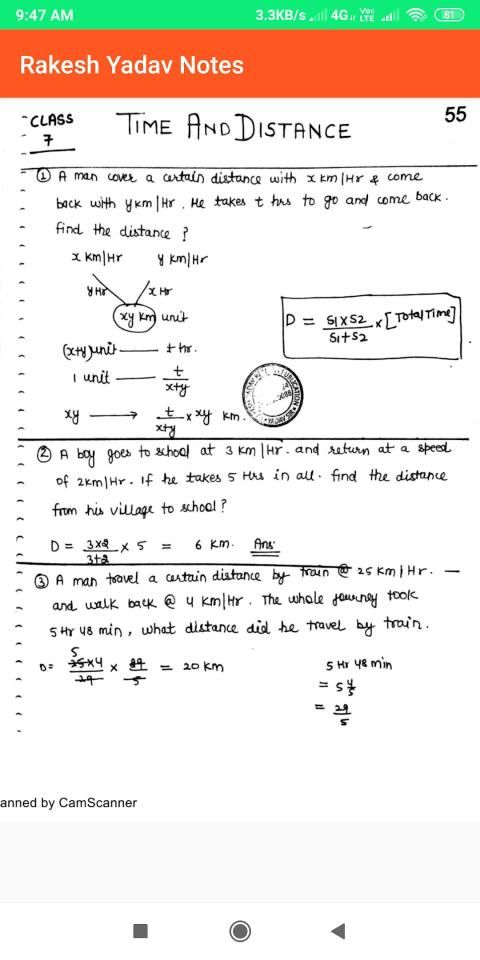 9:47 AM 3.3KB/s 4G Vo) LTE 81
Rakesh Yadav Notes
CLASS 7 TIME AND DISTANCE 55
① A man cover a certain distance with x km/Hr & come
back with y km/Hr. He takes t hrs to go and come back.
find the distance?
x km/Hr y km/Hr
y Hr x Hr
xy km unit
D = S1×S2/S1+S2 × [Total Time]
(x+y) unit — t hr.
1 unit — t/x+y
xy → t/x+y × xy km.
② A boy goes to school at 3 km/Hr. and return at a speed
of 2km/Hr. If he takes 5 Hrs in all. find the distance
from his village to school?
D = 3×2/3+2 × 5 = 6 km. Ans
③ A man travel a certain distance by train @ 25 km/Hr. —
and walk back @ 4 km/Hr. The whole journey took
5 Hr 48 min, what distance did he travel by train.
5
D= 25×4/29 × 29/5 = 20 km
5 Hr 48 min
= 5 4/5
= 29/5
anned by CamScanner